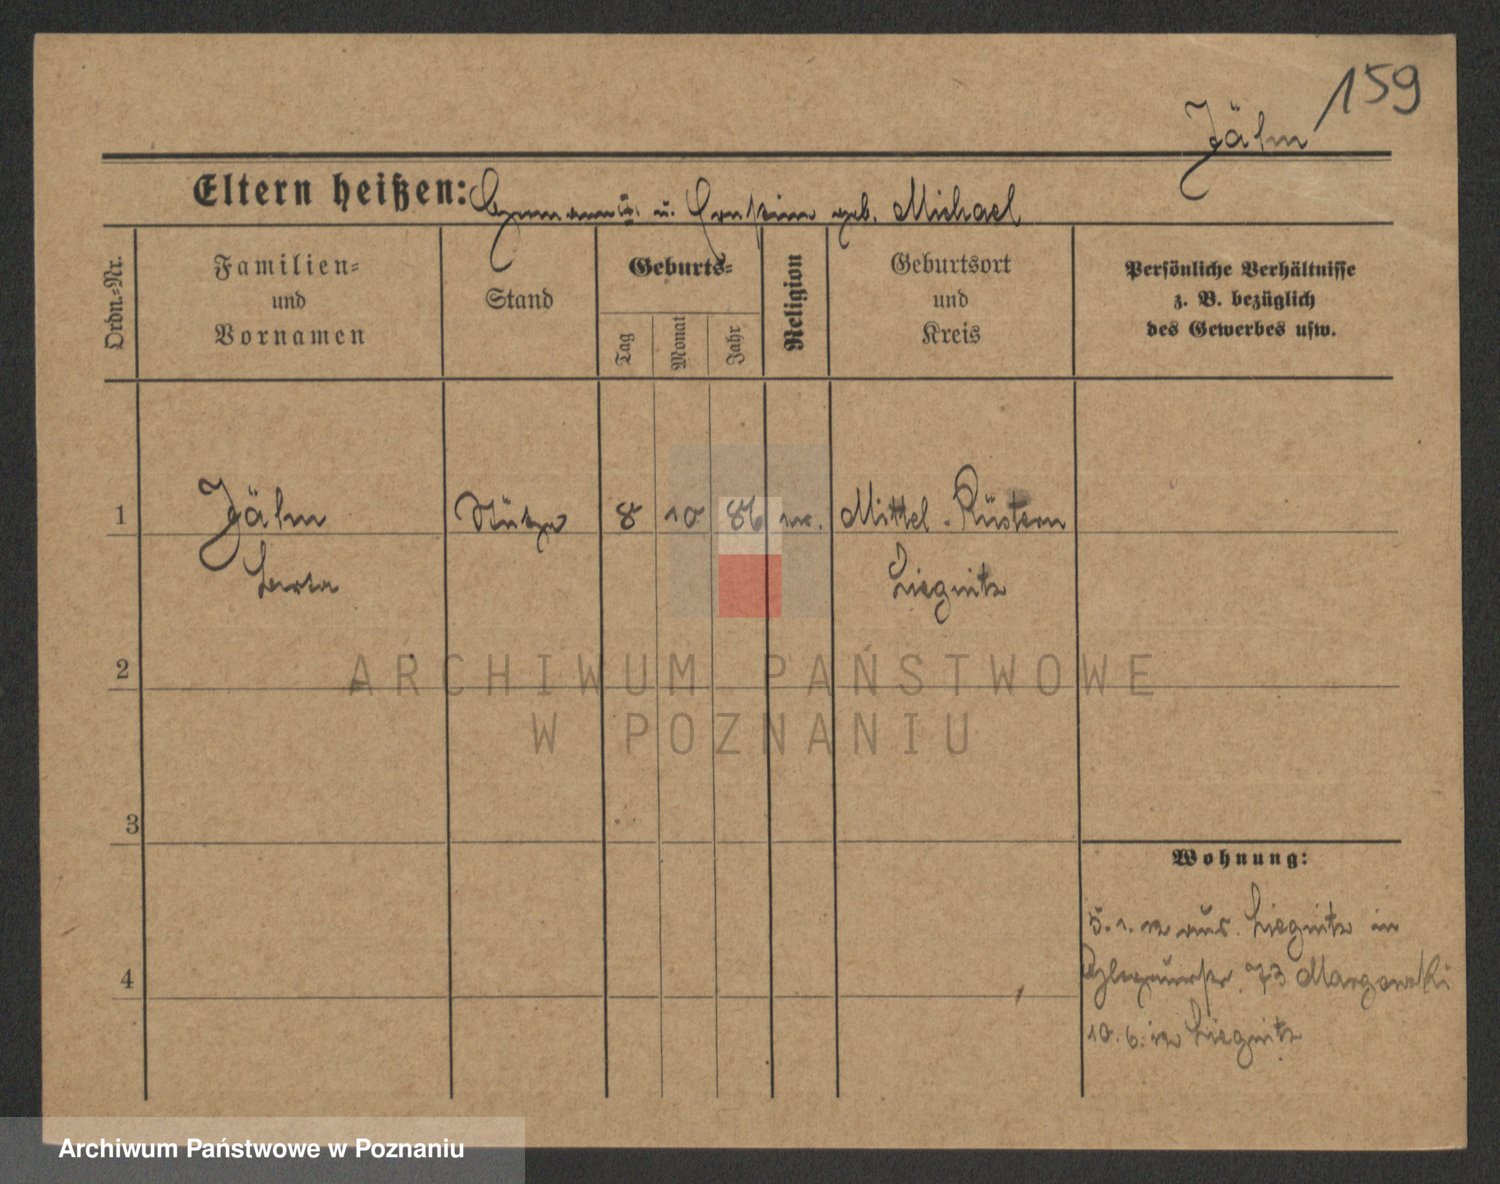 159
Jähn
Eltern heißen: Hermann u. Ernstine geb. Michael
Ordn.-Nr.
Familien-
und
Vornamen
Stand
Geburts-
Tag
Monat
Jahr
Religion
Geburtsort
und
Kreis
Persönliche Verhältnisse
z. B. bezüglich
des Gewerbes usw.
1
Jähn
Stütze
8
10
86
Mittel-Rüstern
Liegnitz
ARCHIWUM PAŃSTWOWE
W POZNANIU
2
3
4
Wohnung:
5. 1. 12 aus Liegnitz in
73
10. 6. 12 Liegnitz
Archiwum Państwowe w Poznaniu